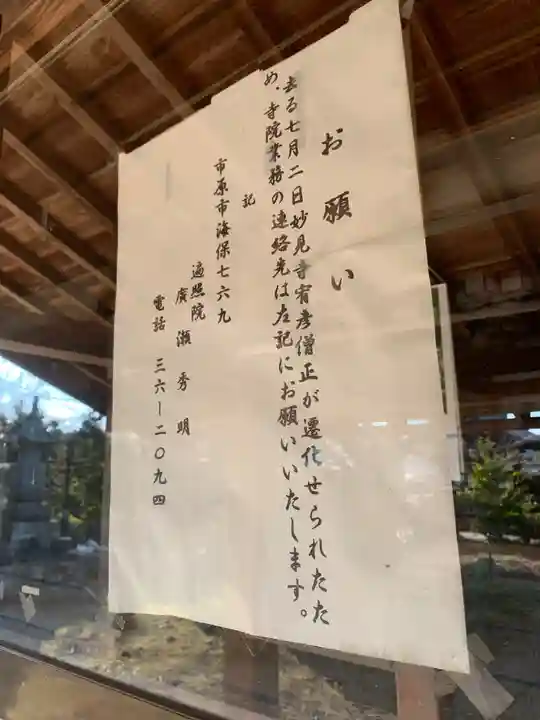 お願い
去る七月二日妙見寺宥彦僧正が遷化せられたた
め、寺院業務の連絡先は左記にお願いいたします。
記
市原市海保七六九
遍照院
廣瀬秀明
電話 三六ー二〇九四